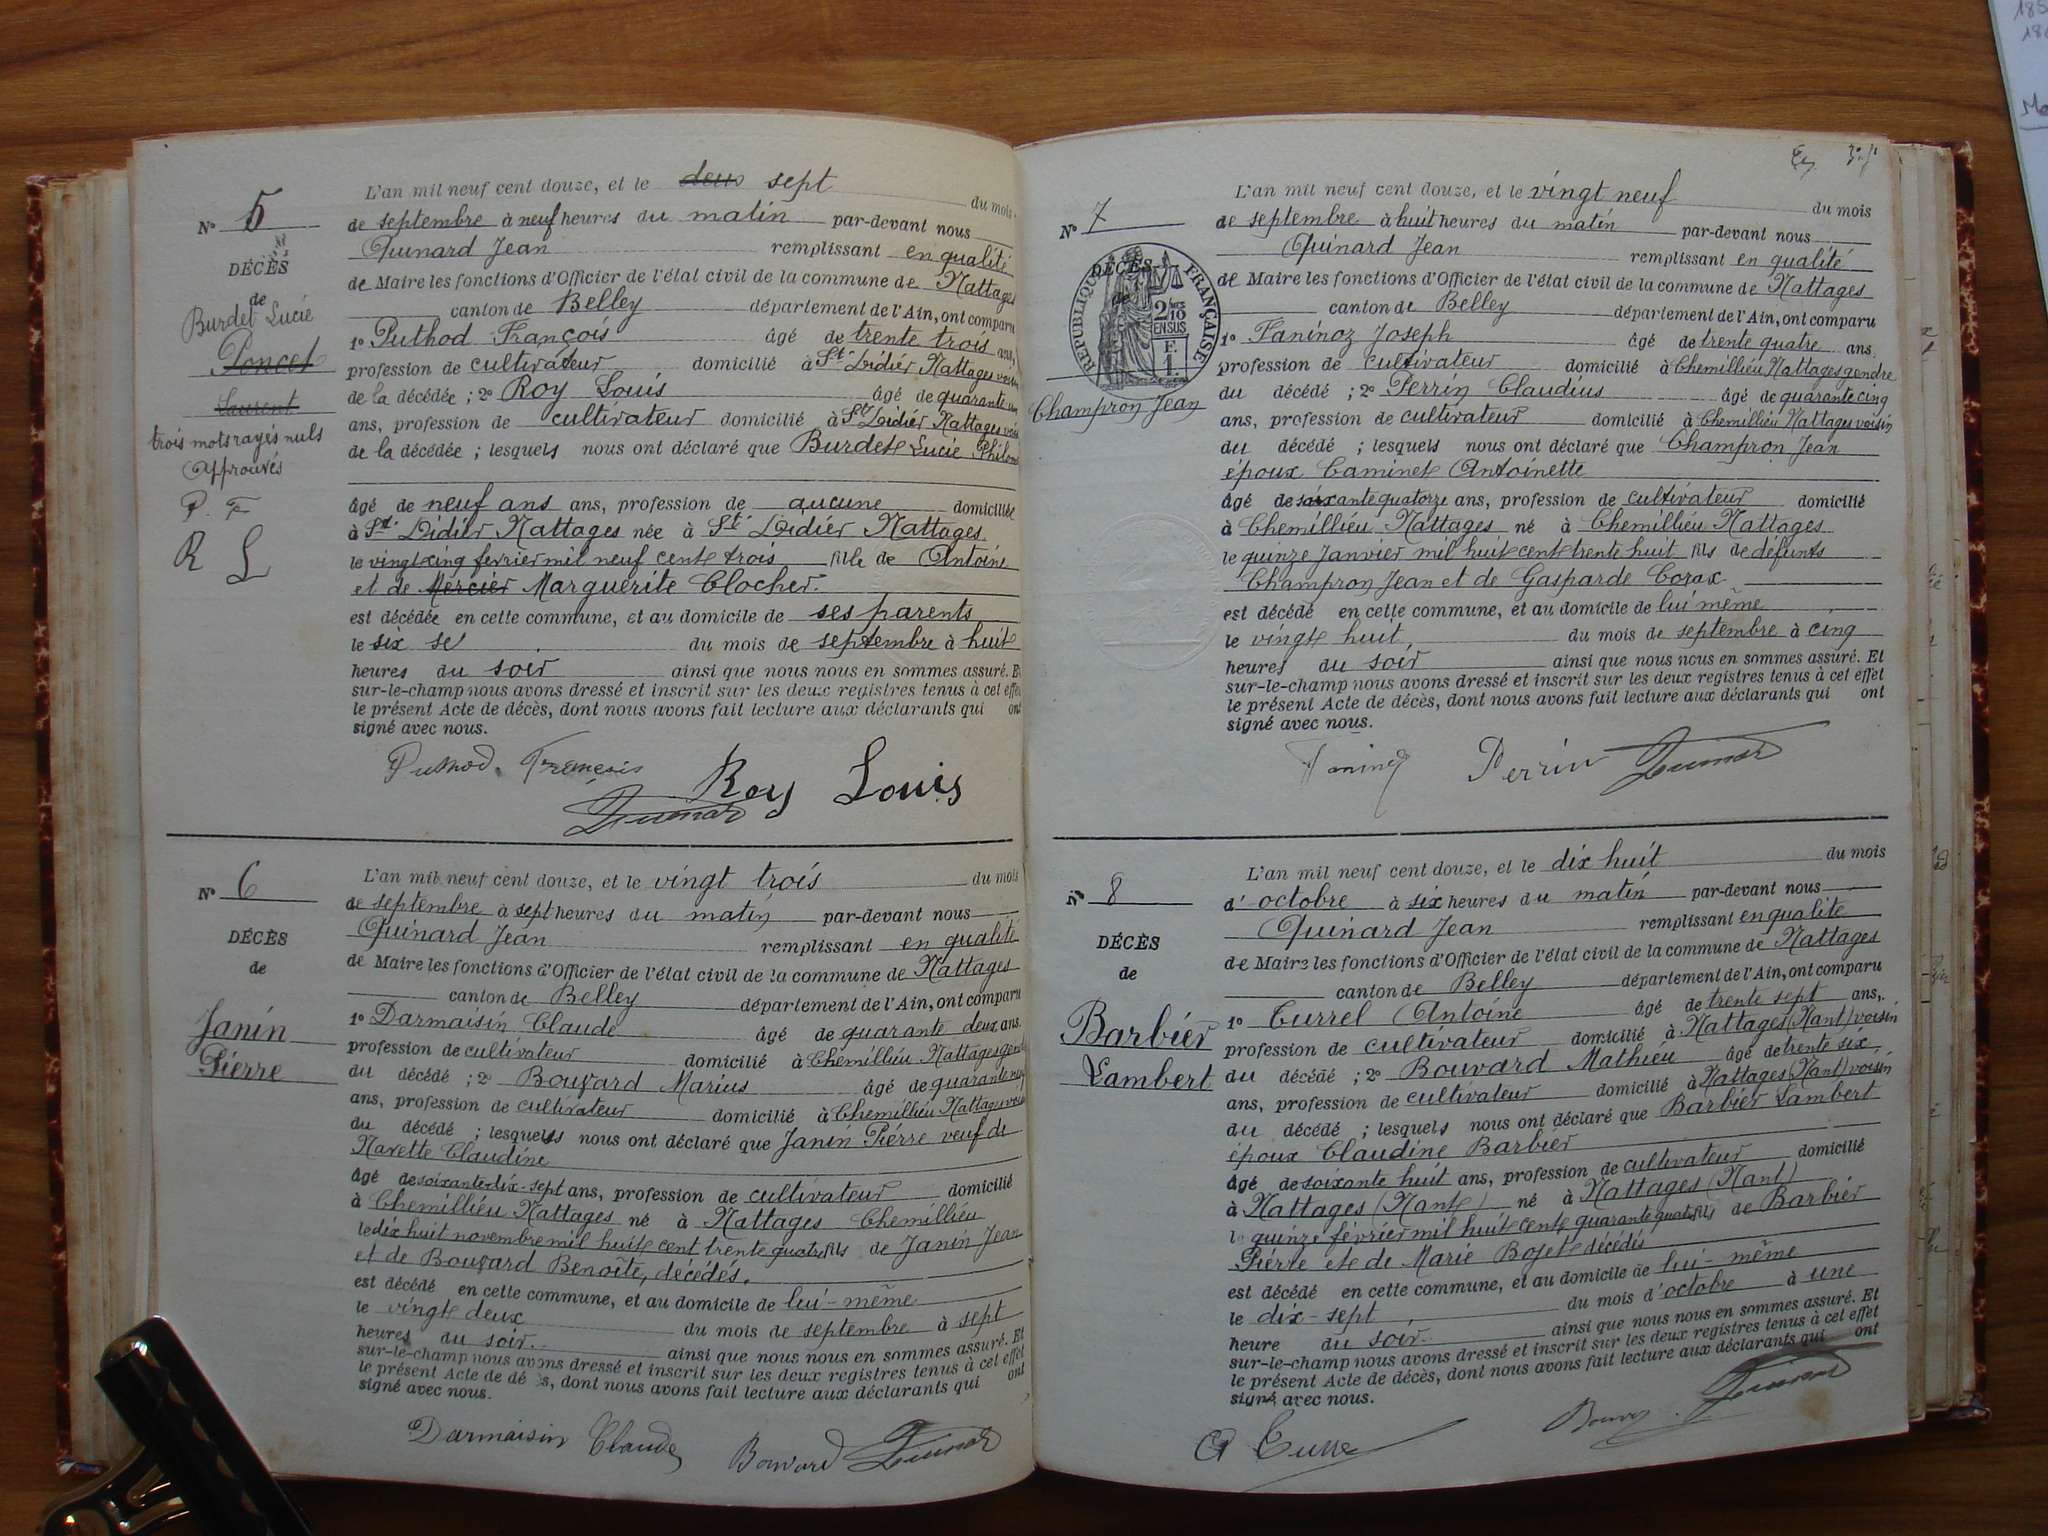 L'an mil neuf cent douze, et le deux sept du mois
Nº 5
de septembre à neuf heures du matin par-devant nous
Quinard Jean remplissant en qualité
DÉCÈS
de Maire les fonctions d'Officier de l'état civil de la commune de Nattages
de
Burdet Lucie
Poncet
Laurent
trois mots rayés nuls
approuvés
P. F
R L
canton de Belley département de l'Ain, ont comparu
1º Puthod François âgé de trente trois ans,
profession de cultivateur domicilié à St. Didier Nattages voisin
de la décédée ; 2º Roy Louis âgé de quarante un
ans, profession de cultivateur domicilié à St Didier Nattages voisin
de la décédée ; lesquels nous ont déclaré que Burdet Lucie Philom
âgé de neuf ans ans, profession de aucune domiciliée
à St. Didier Nattages née à St. Didier Nattages
le vingt cinq fevrier mil neuf cent trois fille de Antoine
et de Mercier Marguerite Clocher.
est décédée en cette commune, et au domicile de ses parents
le six se du mois de septembre à huit
heures du soir ainsi que nous nous en sommes assuré. Et
sur-le-champ nous avons dressé et inscrit sur les deux registres tenus à cet effet
le présent Acte de décès, dont nous avons fait lecture aux déclarants qui ont
signé avec nous.
Puthod François Roy Louis
Quinard
L'an mil neuf cent douze, et le vingt trois du mois
Nº 6
de septembre à sept heures du matin par-devant nous
Quinard Jean remplissant en qualité
DÉCÈS
de
Janin
Pierre
de Maire les fonctions d'Officier de l'état civil de la commune de Nattages
canton de Belley département de l'Ain, ont comparu
1º Darmaisin Claude âgé de quarante deux ans.
profession de cultivateur domicilié à Chemillieu Nattages gendre
du décédé ; 2º Bouvard Marius âgé de quarante neuf
ans, profession de cultivateur domicilié à Chemillieu Nattages voisin
du décédé ; lesquels nous ont déclaré que Janin Pierre veuf de
Navette Claudine
âgé de soixante-dix-sept ans, profession de cultivateur domicilié
à Chemillieu Nattages né à Nattages Chemillieu
le dix huit novembre mil huit cent trente quatre fils de Janin Jean
et de Bouvard Benoîte, décédés.
est décédé en cette commune, et au domicile de lui-même
le vingt deux du mois de septembre à sept
heures du soir. ainsi que nous nous en sommes assuré. Et
sur-le-champ nous avons dressé et inscrit sur les deux registres tenus à cet effet
le présent Acte de décès, dont nous avons fait lecture aux déclarants qui ont
signé avec nous.
Darmaisin Claude Bouvard Quinard
L'an mil neuf cent douze, et le vingt neuf du mois
Nº 7
de septembre à huit heures du matin par-devant nous
Quinard Jean remplissant en qualité
DÉCÈS
de
RÉPUBLIQUE FRANÇAISE
2/10
EN SUS
F.
1.
Champron Jean
de Maire les fonctions d'Officier de l'état civil de la commune de Nattages
canton de Belley département de l'Ain, ont comparu
1º Faninoz Joseph âgé de trente quatre ans
profession de cultivateur domicilié à Chemillieu Nattages gendre
du décédé ; 2º Perrin Claudius âgé de quarante cinq
ans, profession de cultivateur domicilié à Chemillieu Nattages voisin
du décédé ; lesquels nous ont déclaré que Champron Jean
époux Caminet Antoinette
âgé de soixante quatorze ans, profession de cultivateur domicilié
à Chemillieu Nattages né à Chemillieu Nattages
le quinze Janvier mil huit cent trente huit fils de défunts
Champron Jean et de Gasparde Corax
est décédé en cette commune, et au domicile de lui même
le vingt huit du mois de septembre à cinq
heures du soir ainsi que nous nous en sommes assuré. Et
sur-le-champ nous avons dressé et inscrit sur les deux registres tenus à cet effet
le présent Acte de décès, dont nous avons fait lecture aux déclarants qui ont
signé avec nous.
Perrin Quinard
L'an mil neuf cent douze, et le dix huit du mois
Nº 8
d' octobre à six heures du matin par-devant nous
Quinard Jean remplissant en qualité
DÉCÈS
de
Barbier
Lambert
de Maire les fonctions d'Officier de l'état civil de la commune de Nattages
canton de Belley département de l'Ain, ont comparu
1º Currel Antoine âgé de trente sept ans,
profession de cultivateur domicilié à Nattages (Nant) voisin
du décédé ; 2º Bouvard Mathieu âgé de trente six
ans, profession de cultivateur domicilié à Nattages (Nant) voisin
du décédé ; lesquels nous ont déclaré que Barbier Lambert
époux Claudine Barbier
âgé de soixante huit ans, profession de cultivateur domicilié
à Nattages (Nant) né à Nattages (Nant)
le quinze février mil huit cent quarante quatre fils de Barbier
Pierre et de Marie Bojet décédés
est décédé en cette commune, et au domicile de lui-même
le dix-sept du mois d'octobre à une
heure du soir ainsi que nous nous en sommes assuré. Et
sur-le-champ nous avons dressé et inscrit sur les deux registres tenus à cet effet
le présent Acte de décès, dont nous avons fait lecture aux déclarants qui ont
signé avec nous.
Quinard